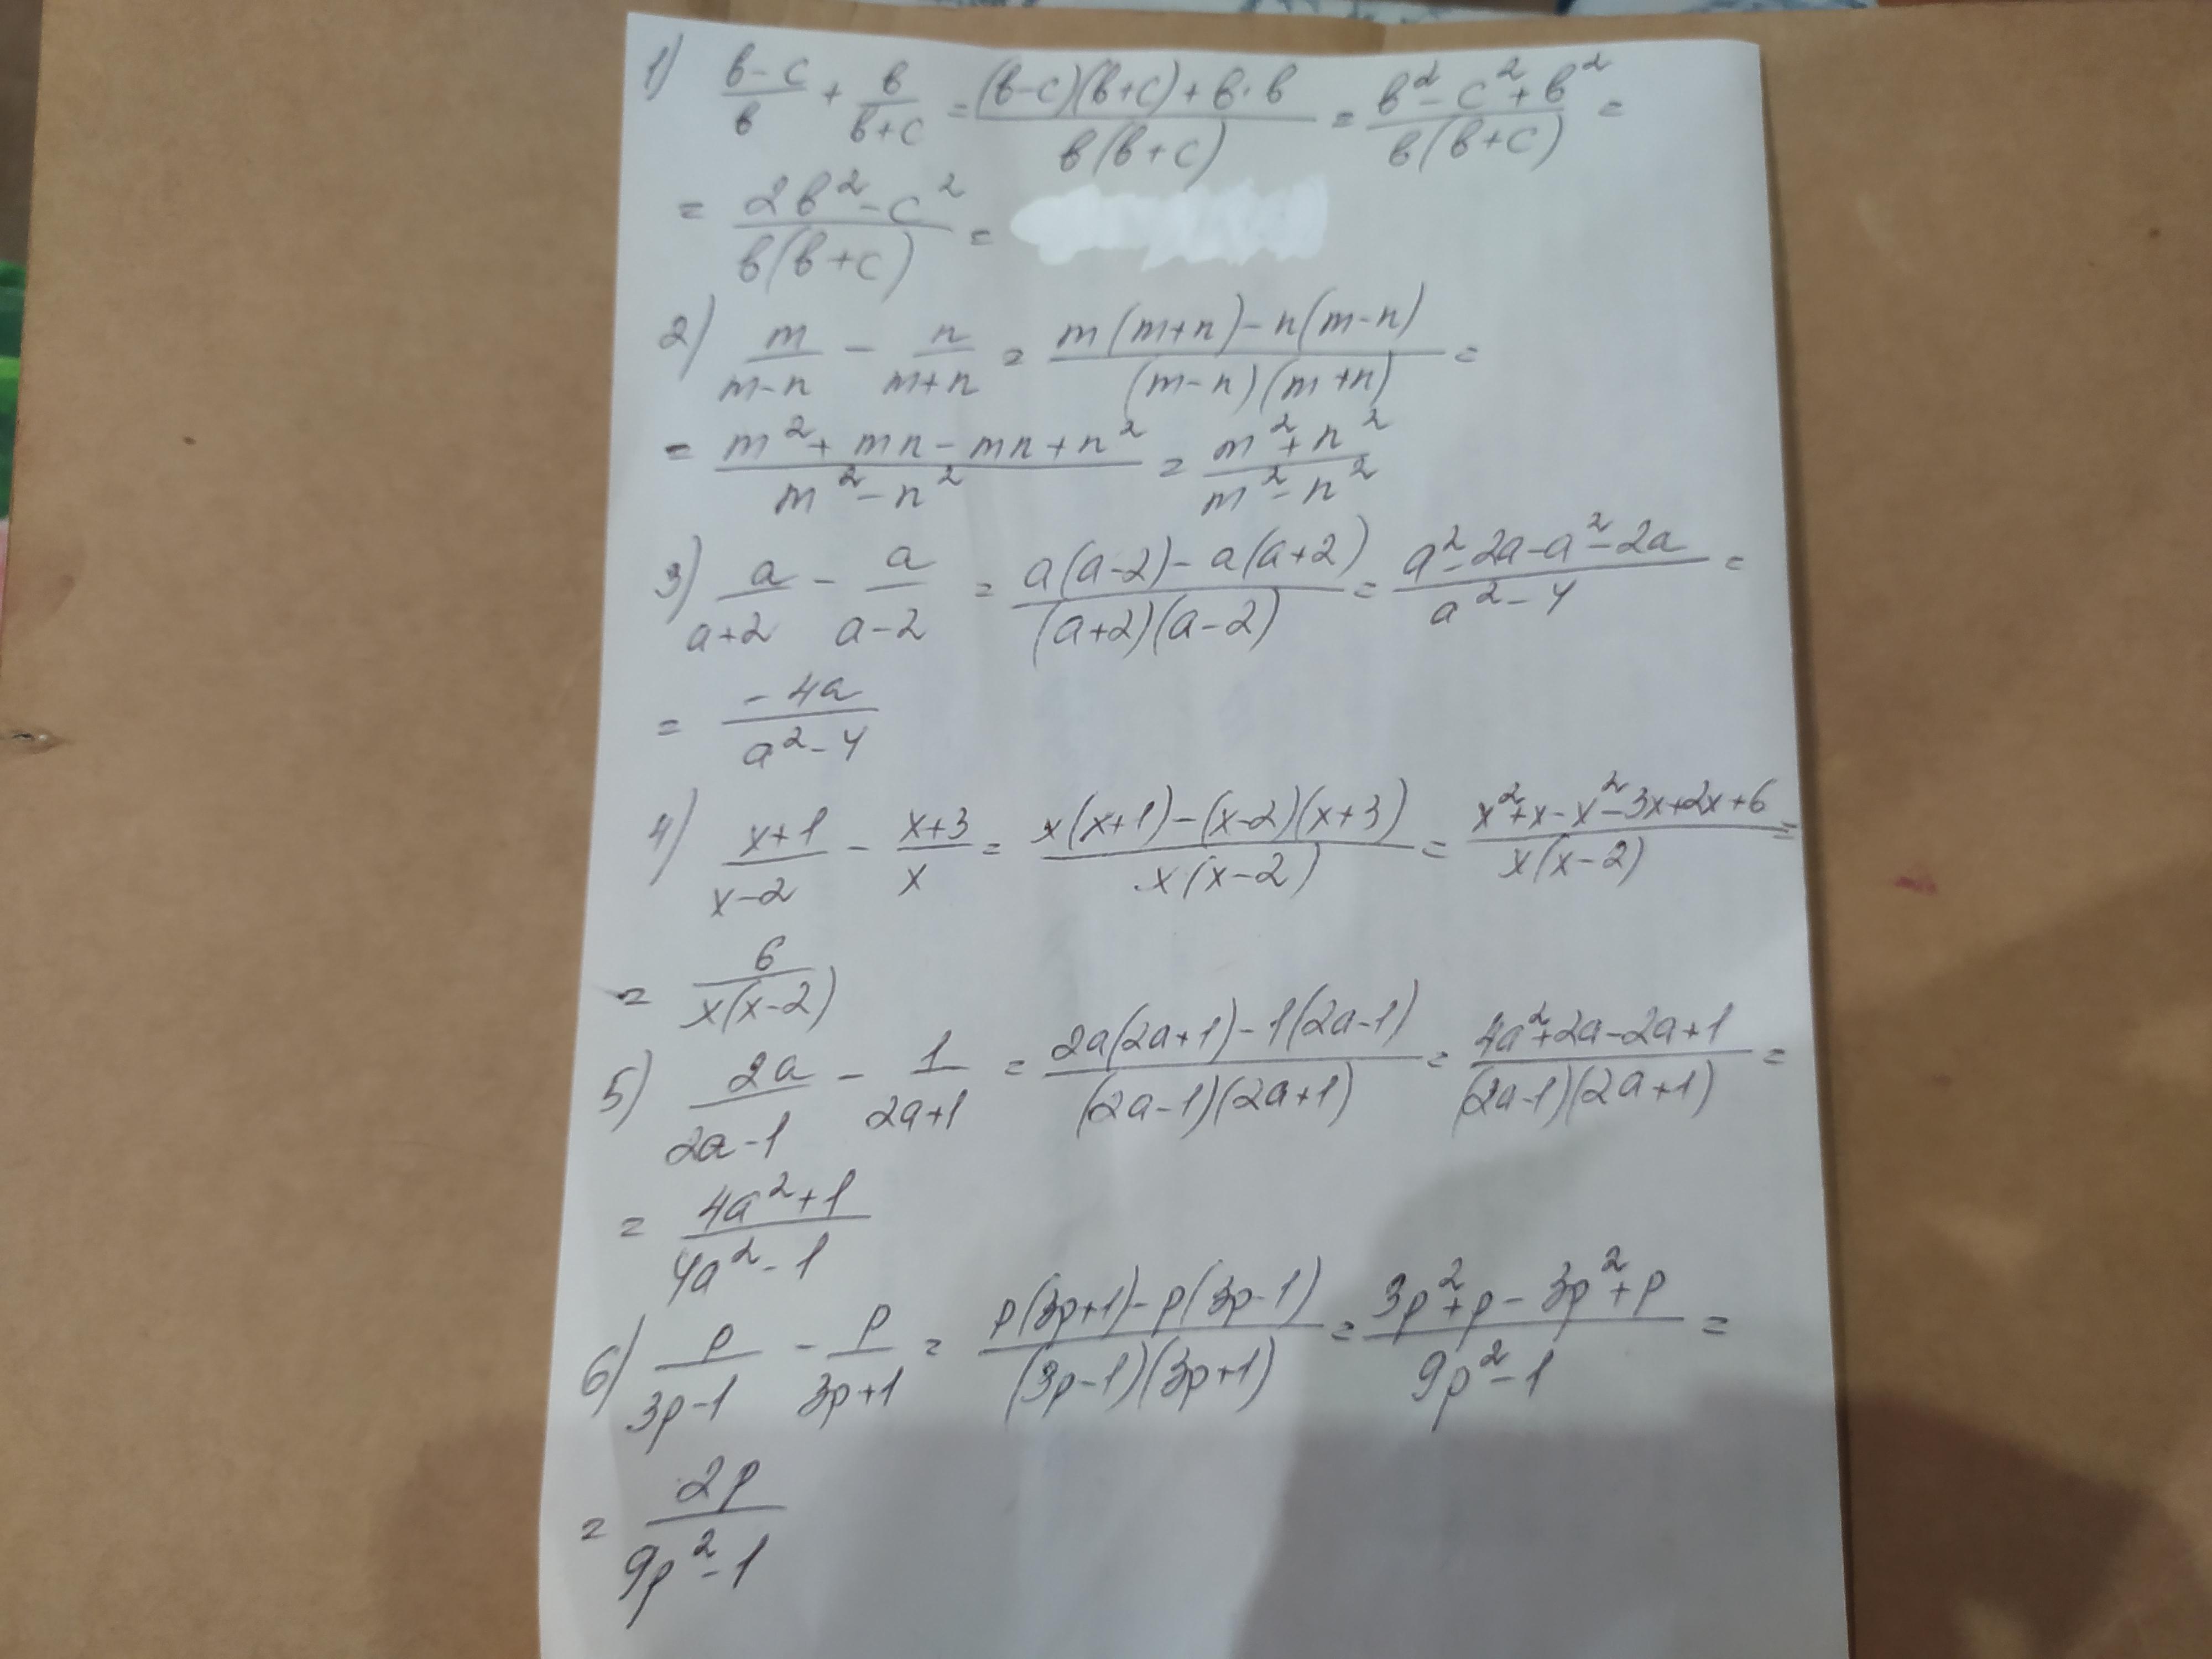 1) (в-с)/в + в/(в+с) = ((в-с)(в+с)+в·в)/(в(в+с)) = (в²-с²+в²)/(в(в+с)) =
= (2в²-с²)/(в(в+с)) =
2) m/(m-n) - n/(m+n) = (m(m+n)-n(m-n))/((m-n)(m+n)) =
= (m²+mn-mn+n²)/(m²-n²) = (m²+n²)/(m²-n²)
3) a/(a+2) - a/(a-2) = (a(a-2)-a(a+2))/((a+2)(a-2)) = (a²-2a-a²-2a)/(a²-4) =
= (-4a)/(a²-4)
4) (x+1)/(x-2) - (x+3)/x = (x(x+1)-(x-2)(x+3))/(x(x-2)) = (x²+x-x²-3x+2x+6)/(x(x-2)) =
= 6/(x(x-2))
5) 2a/(2a-1) - 1/(2a+1) = (2a(2a+1)-1(2a-1))/((2a-1)(2a+1)) = (4a²+2a-2a+1)/((2a-1)(2a+1)) =
= (4a²+1)/(4a²-1)
6) p/(3p-1) - p/(3p+1) = (p(3p+1)-p(3p-1))/((3p-1)(3p+1)) = (3p²+p-3p²+p)/(9p²-1) =
= 2p/(9p²-1)